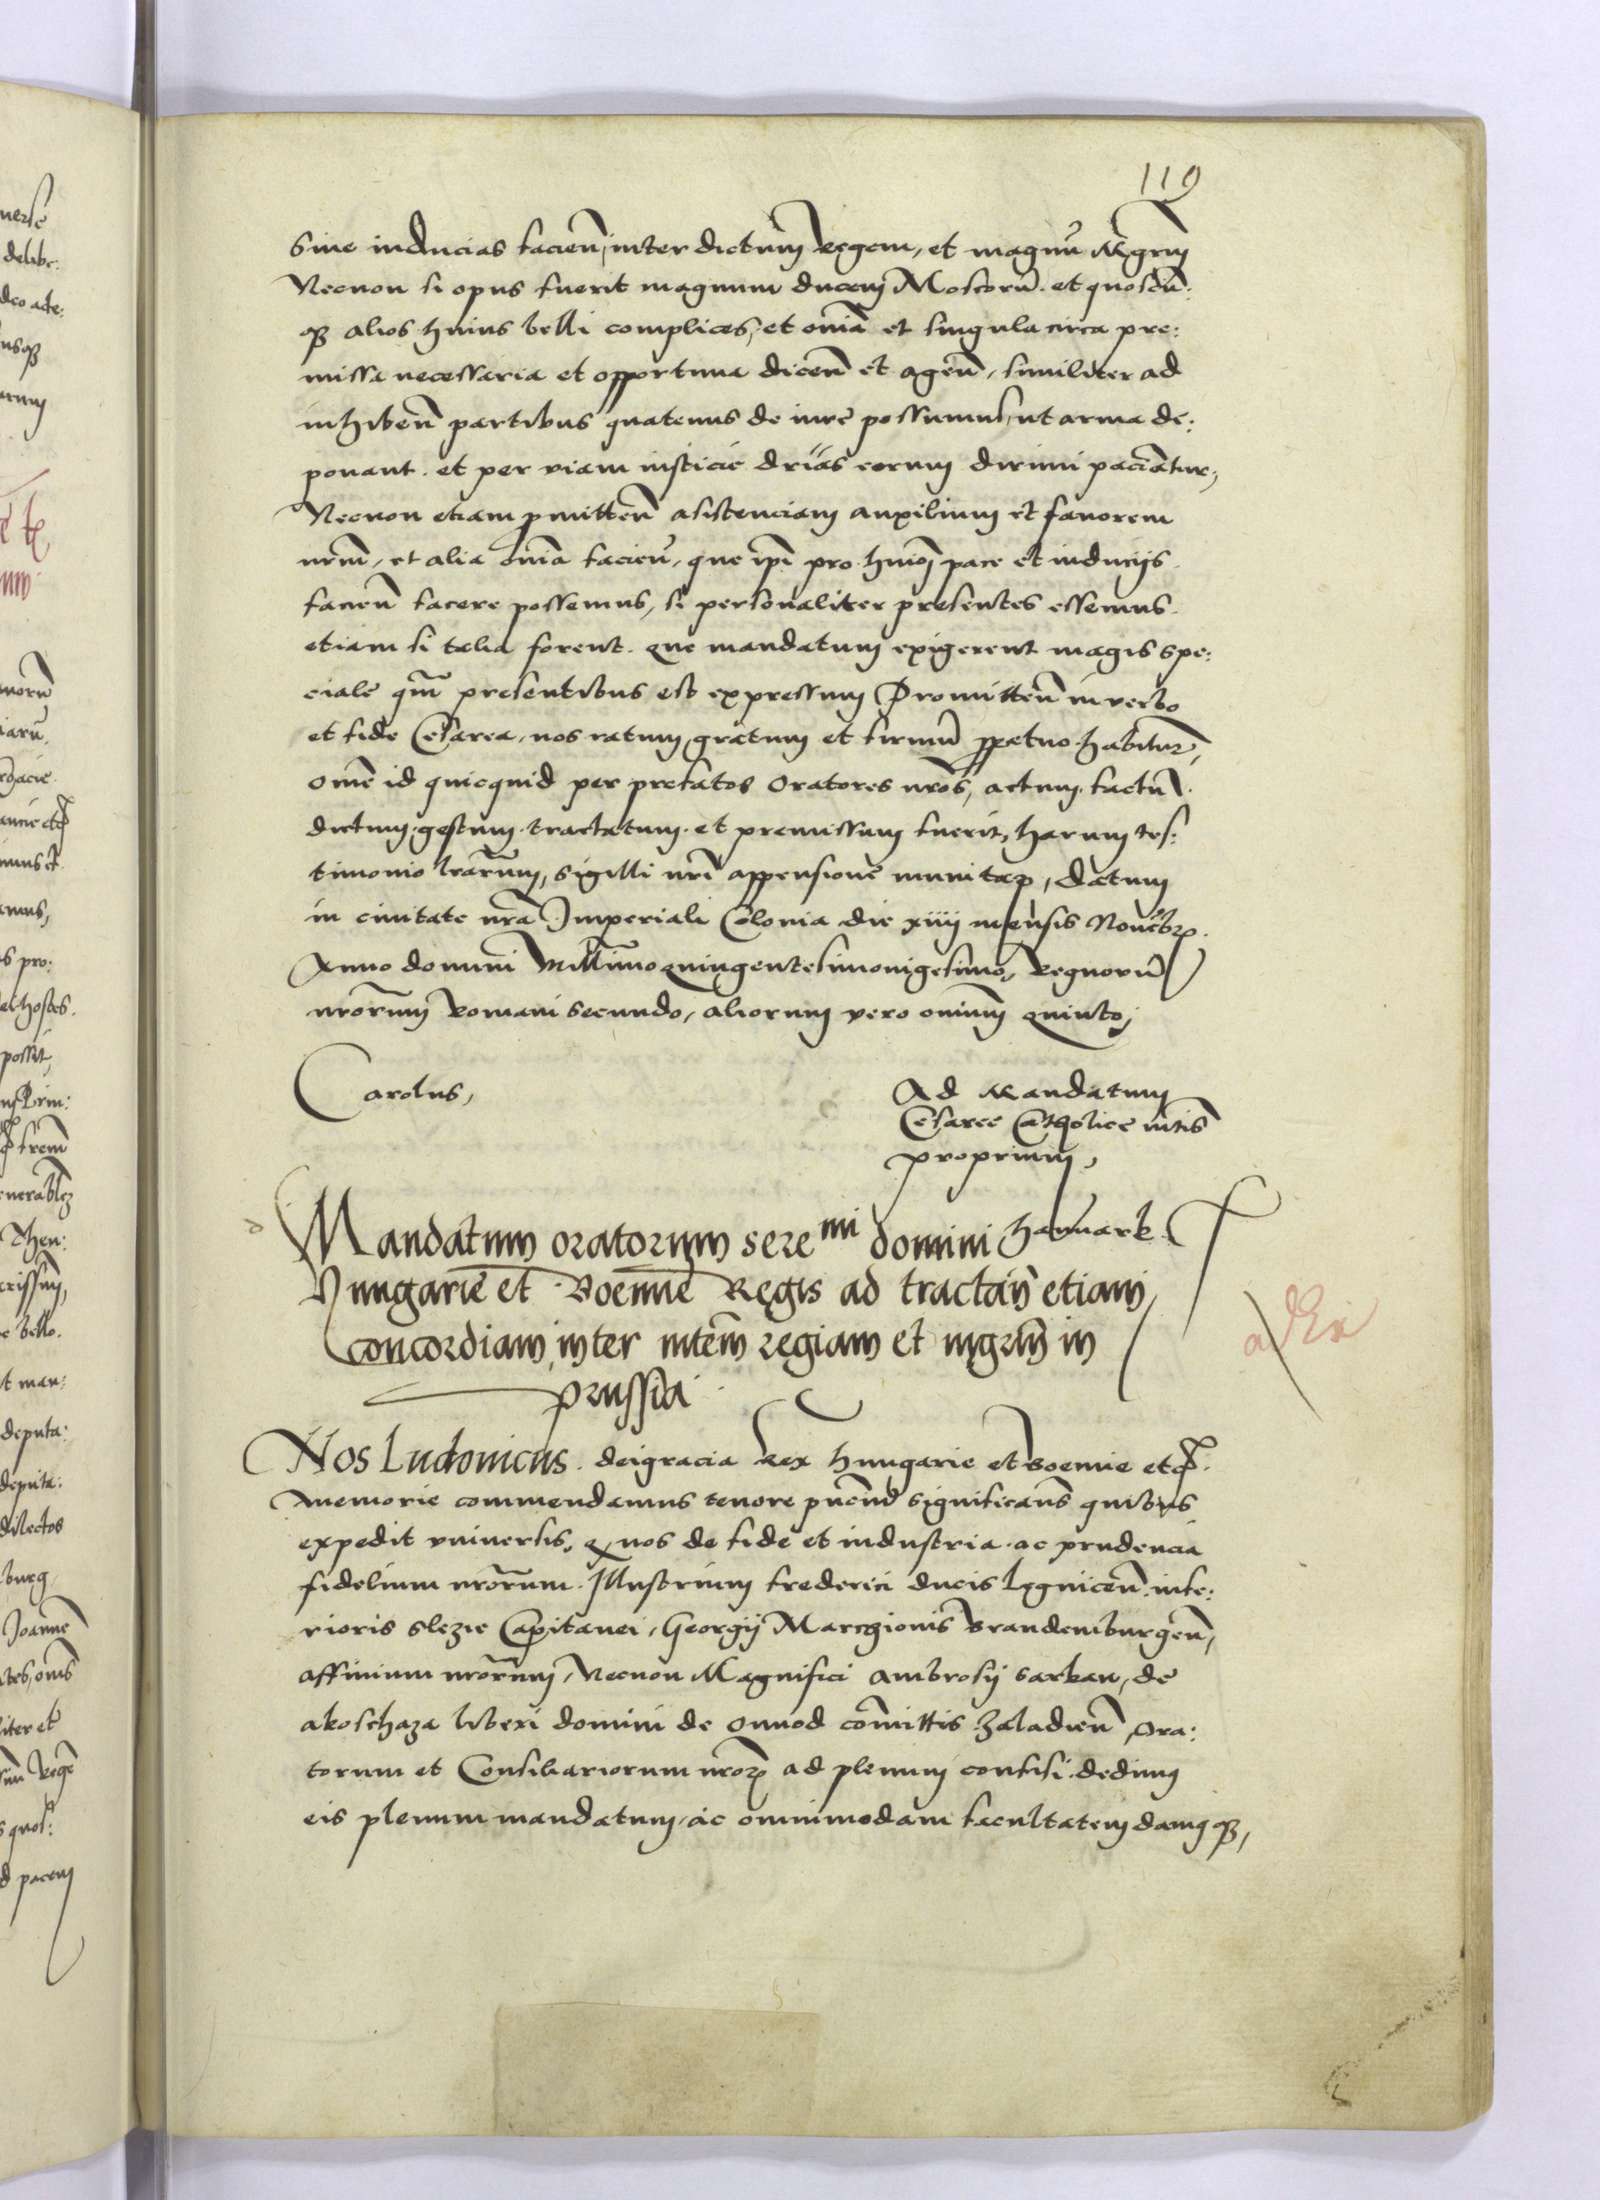 119
Siue inducias facien̄, inter dictum Regem, et magnū Mgrm̄
Necnon si opus fuerit magnum ducem Moscorū. et quoscū:
qꝫ alios huius belli complices, et om̄ia et singula circa pre:
missa necessaria et opportuna dicen̄ et agen̄, similiter ad
inhiben̄ partibus quatenus de iure possumus, ut arma de:
ponant. et per viam iusticie dr̄ias eorum dirimi paciantur,
Necnon etiam ꝓmitten̄ asistenciam auxilium et fauorem
nr̄m, et alia om̄ia facien̄, que ip̄i pro hmōi pace et inducijs
facien̄ facere possemus, si personaliter presentes essemus.
etiam si talia forent. que mandatum exigerent magis spe:
ciale qm̄ presentibus est expressum Promitten̄ in verbo
et fide Cesarea, nos ratum, gratum et firmū ꝑpetuo habitur̄,
om̄e id quicquid per prefatos Oratores nr̄os, actum, factū.
dictum, gestum. tractatum. et promissum fuerit, harum tes:
timonio lr̄arum, sigilli nr̄i appensione munitaꝝ, Datum
in ciuitate nr̄a Imperiali Colonia die xiiij mensis Nouēbꝝ.
Anno domini Millimoquingentesimovigesimo, Regnorū
nr̄orum Romani secundo, aliorum vero omnium quinto,
Carolus,
Ad Mandatum
Cesaree Catholice mtis
proprium,
Mandatum oratorum sereᵐⁱ domini Hannark
Hungarie et Boemie Regis ad tractan̄ etiam
concordiam inter mtem̄ regiam et mgrm̄ in
prussia
Nos Ludouicus. deigracia Rex Hungarie et Boemie etc̄.
memorie commendamus tenore pn̄cium significan̄s quibus
expedit vniuersis, q nos de fide et industria. ac prudencia
fidelium nr̄orum. Illustrium frederici ducis Lignicen̄. infe:
rioris Slezie Capitanei, Georgij Marchionis Brandenburgen̄,
affinium nr̄orum, Necnon Magnifici Ambrosij sarkan, de
akoschaza liberi domini de onnod com̄ittis Zaladien̄, Ora:
torum et Consiliariorum nr̄oꝝ ad plenum confisi. dedimus
eis plenum mandatum, ac omnimodam facultatem damusqꝫ,